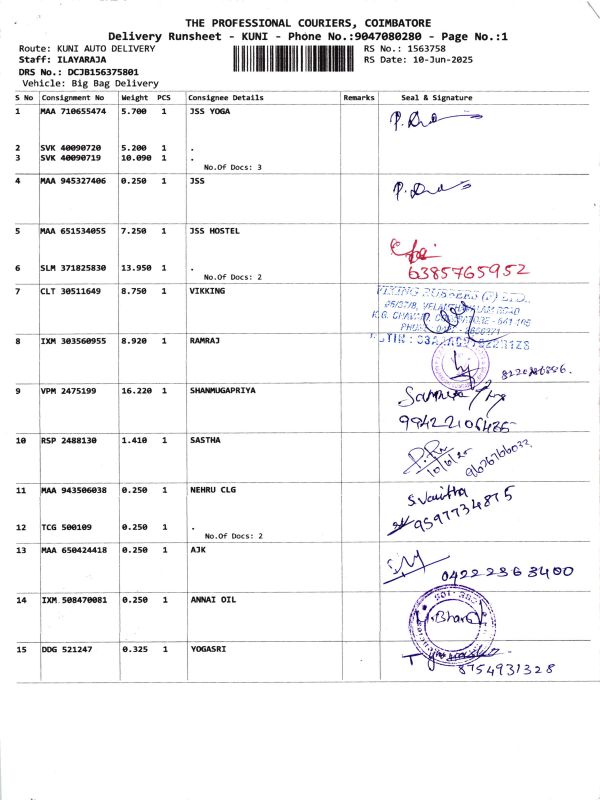 THE PROFESSIONAL COURIERS, COIMBATORE
Delivery Runsheet - KUNI - Phone No.:9047080280 - Page No.:1
Route: KUNI AUTO DELIVERY RS No.: 1563758
Staff: ILAYARAJA RS Date: 10-Jun-2025
DRS No.: DCJB156375801
Vehicle: Big Bag Delivery
S No Consignment No Weight PCS Consignee Details Remarks Seal & Signature
1 MAA 710655474 5.700 1 JSS YOGA
2 SVK 40090720 5.200 1 .
3 SVK 40090719 10.090 1 .
No.Of Docs: 3
4 MAA 945327406 0.250 1 JSS
5 MAA 651534055 7.250 1 JSS HOSTEL
6 SLM 371825830 13.950 1 . 6385765952
No.Of Docs: 2
7 CLT 30511649 8.750 1 VIKKING
VIKING RUBBERS (P) LTD.,
8 IXM 303560955 8.920 1 RAMRAJ
9 VPM 2475199 16.220 1 SHANMUGAPRIYA
10 RSP 2488130 1.410 1 SASTHA
10/6/25
11 MAA 943506038 0.250 1 NEHRU CLG S.Vanitha
9597734875
12 TCG 500109 0.250 1 .
No.Of Docs: 2
13 MAA 650424418 0.250 1 AJK
0422 2363400
14 IXM 508470081 0.250 1 ANNAI OIL
15 DDG 521247 0.325 1 YOGASRI
8754931328